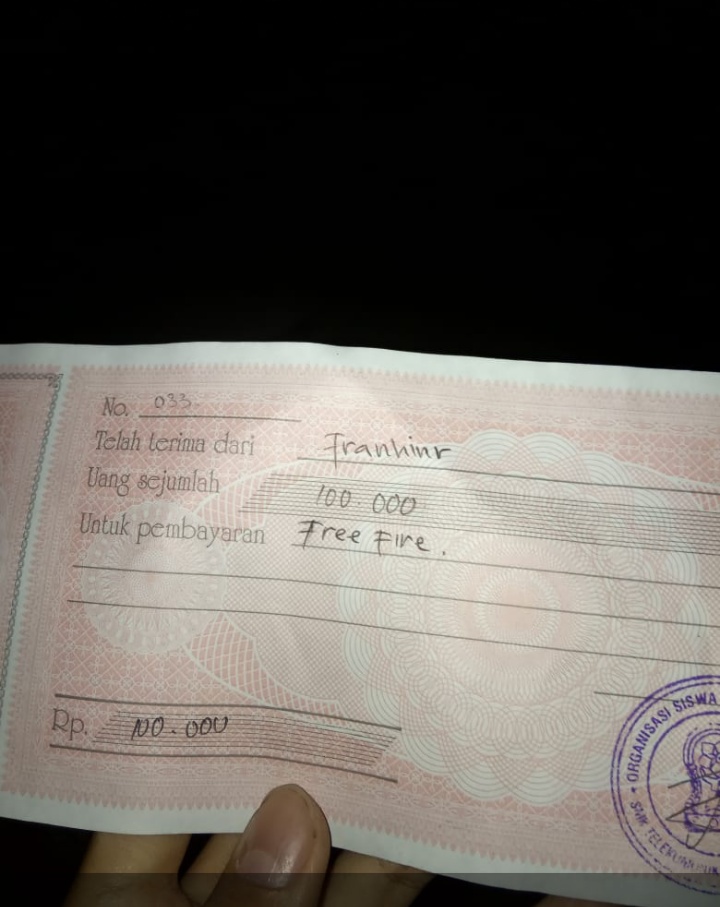 No. 033.
Telah terima dari Franhinr
Uang sejumlah 100.000
Untuk pembayaran Free Fire.
Rp. 100.000
ORGANISASI SISWA
SMK TELEKOMUNIK